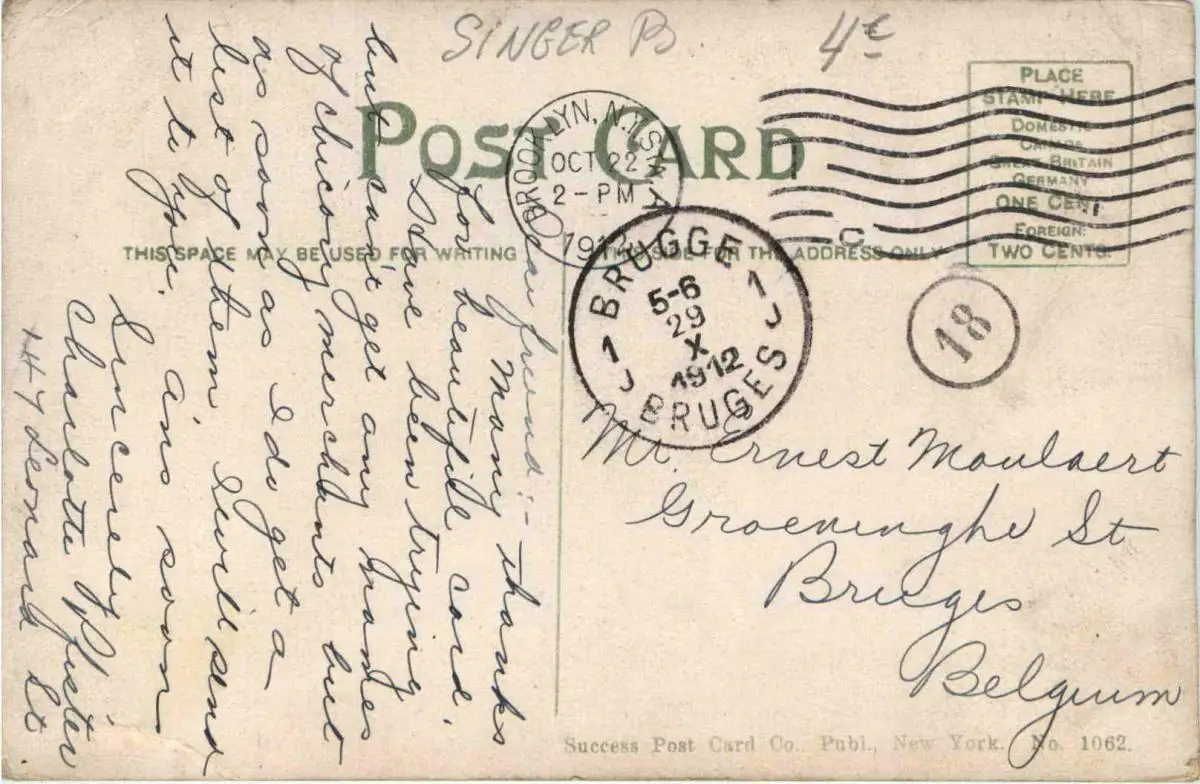 SINGER Bs
4¢
POST CARD
BROOKLYN, N.Y.
OCT 22
2-PM
1912
PLACE
STAMP HERE
DOMESTIC
CANADA
GREAT BRITAIN
GERMANY
ONE CENT
FOREIGN:
TWO CENTS.
THIS SPACE MAY BE USED FOR WRITING
THIS SIDE FOR THE ADDRESS ONLY
C
BRUGGE 1
5-6
29
X
1912
1 BRUGES
18
Dear friend:-
Many thanks
for beautiful card.
I have been trying
but can't get any names
of chicory merchants but
as soon as I do get a
list of them, I will send
it to you. Ans soon
Sincerely
Charlotte Pfister
147 Leonard St
Mr. Ernest Moulaert
Groeninghe St
Bruges
Belgium
Success Post Card Co. Publ., New York. No. 1062.